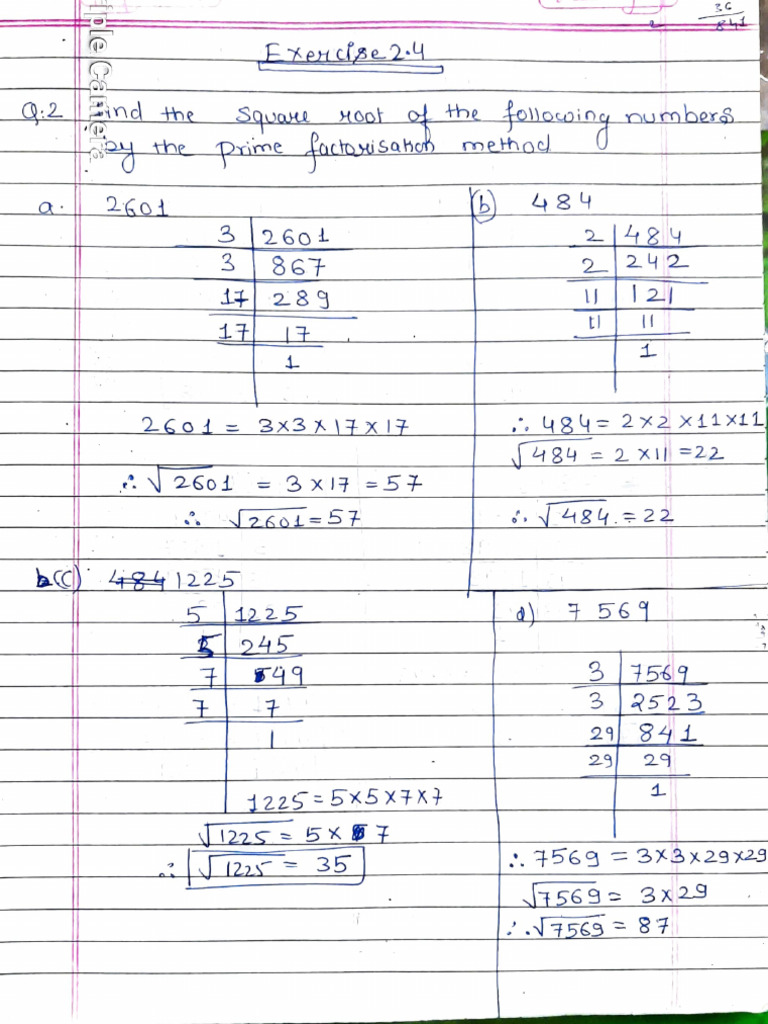 36
2 841
Exercise 2.4
Q:2 ind the square root of the following numbers
by the prime factorisation method
a. 2601
3 | 2601
3 | 867
17 | 289
17 | 17
1
2601 = 3×3×17×17
∴ √2601 = 3×17 = 57
∴ √2601 = 57
(b) 484
2 | 484
2 | 242
11 | 121
11 | 11
1
∴ 484 = 2×2×11×11
√484 = 2×11 = 22
∴ √484 = 22
b(c) 484 1225
5 | 1225
5 | 245
7 | 49
7 | 7
1
1225 = 5×5×7×7
√1225 = 5×7
∴ √1225 = 35
d) 7569
3 | 7569
3 | 2523
29 | 841
29 | 29
1
∴ 7569 = 3×3×29×29
√7569 = 3×29
∴ √7569 = 87
ple Camera